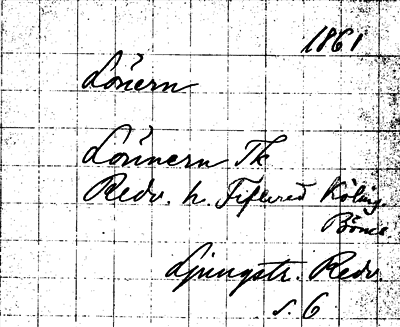 1861
Lönern
Lönnern Tk
Redv. h. Fiflered Köling
Ljungstr. Redv.
s. 6